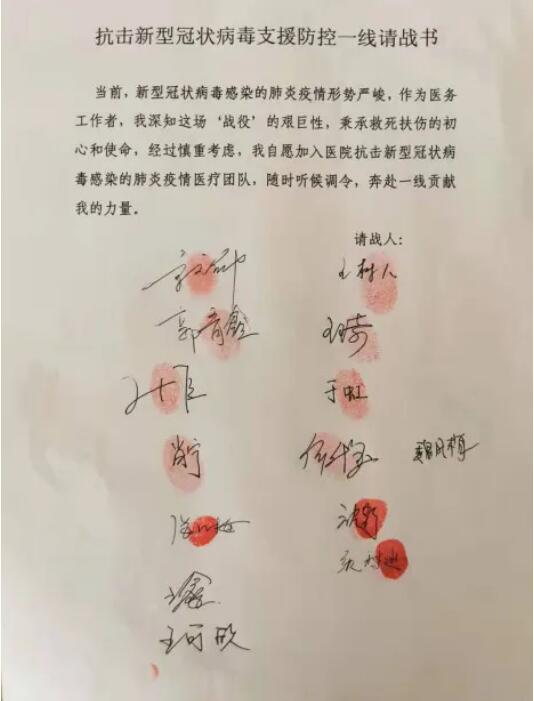 抗击新型冠状病毒支援防控一线请战书
当前，新型冠状病毒感染的肺炎疫情形势严峻，作为医务
工作者，我深知这场‘战役’的艰巨性，秉承救死扶伤的初
心和使命，经过慎重考虑，我自愿加入医院抗击新型冠状病
毒感染的肺炎疫情医疗团队，随时听候调令，奔赴一线贡献
我的力量。
请战人：
王树人
郭育
于虹
肖宁
王可欣